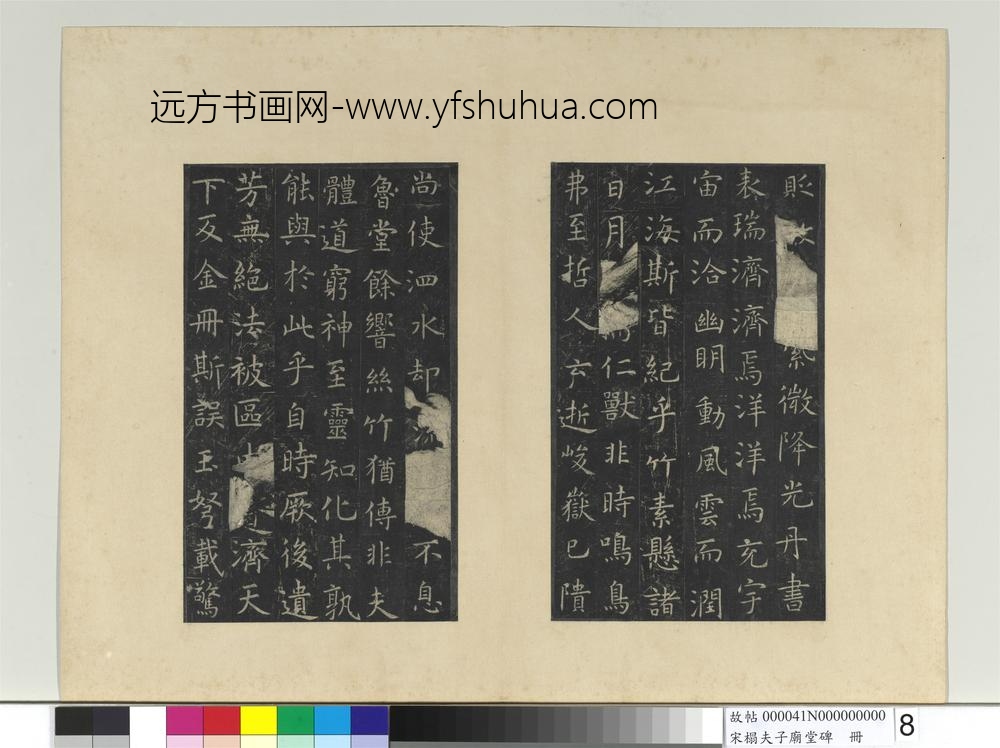 远方书画网-www.yfshuhua.com
貶故紫微降光丹書
表瑞濟濟焉洋洋焉充宇
宙而洽幽明動風雲而潤
江海斯皆紀乎竹素懸諸
日月而仁獸非時鳴鳥
弗至哲人云逝峻嶽已隤
尚使泗水却流不息
魯堂餘響絲竹猶傳非夫
體道窮神至靈知化其孰
能與於此乎自時厥後遺
芳無絕法被區中道濟天
下及金冊斯誤玉弩載驚
故帖 000041N000000000
宋榻夫子廟堂碑 冊
8